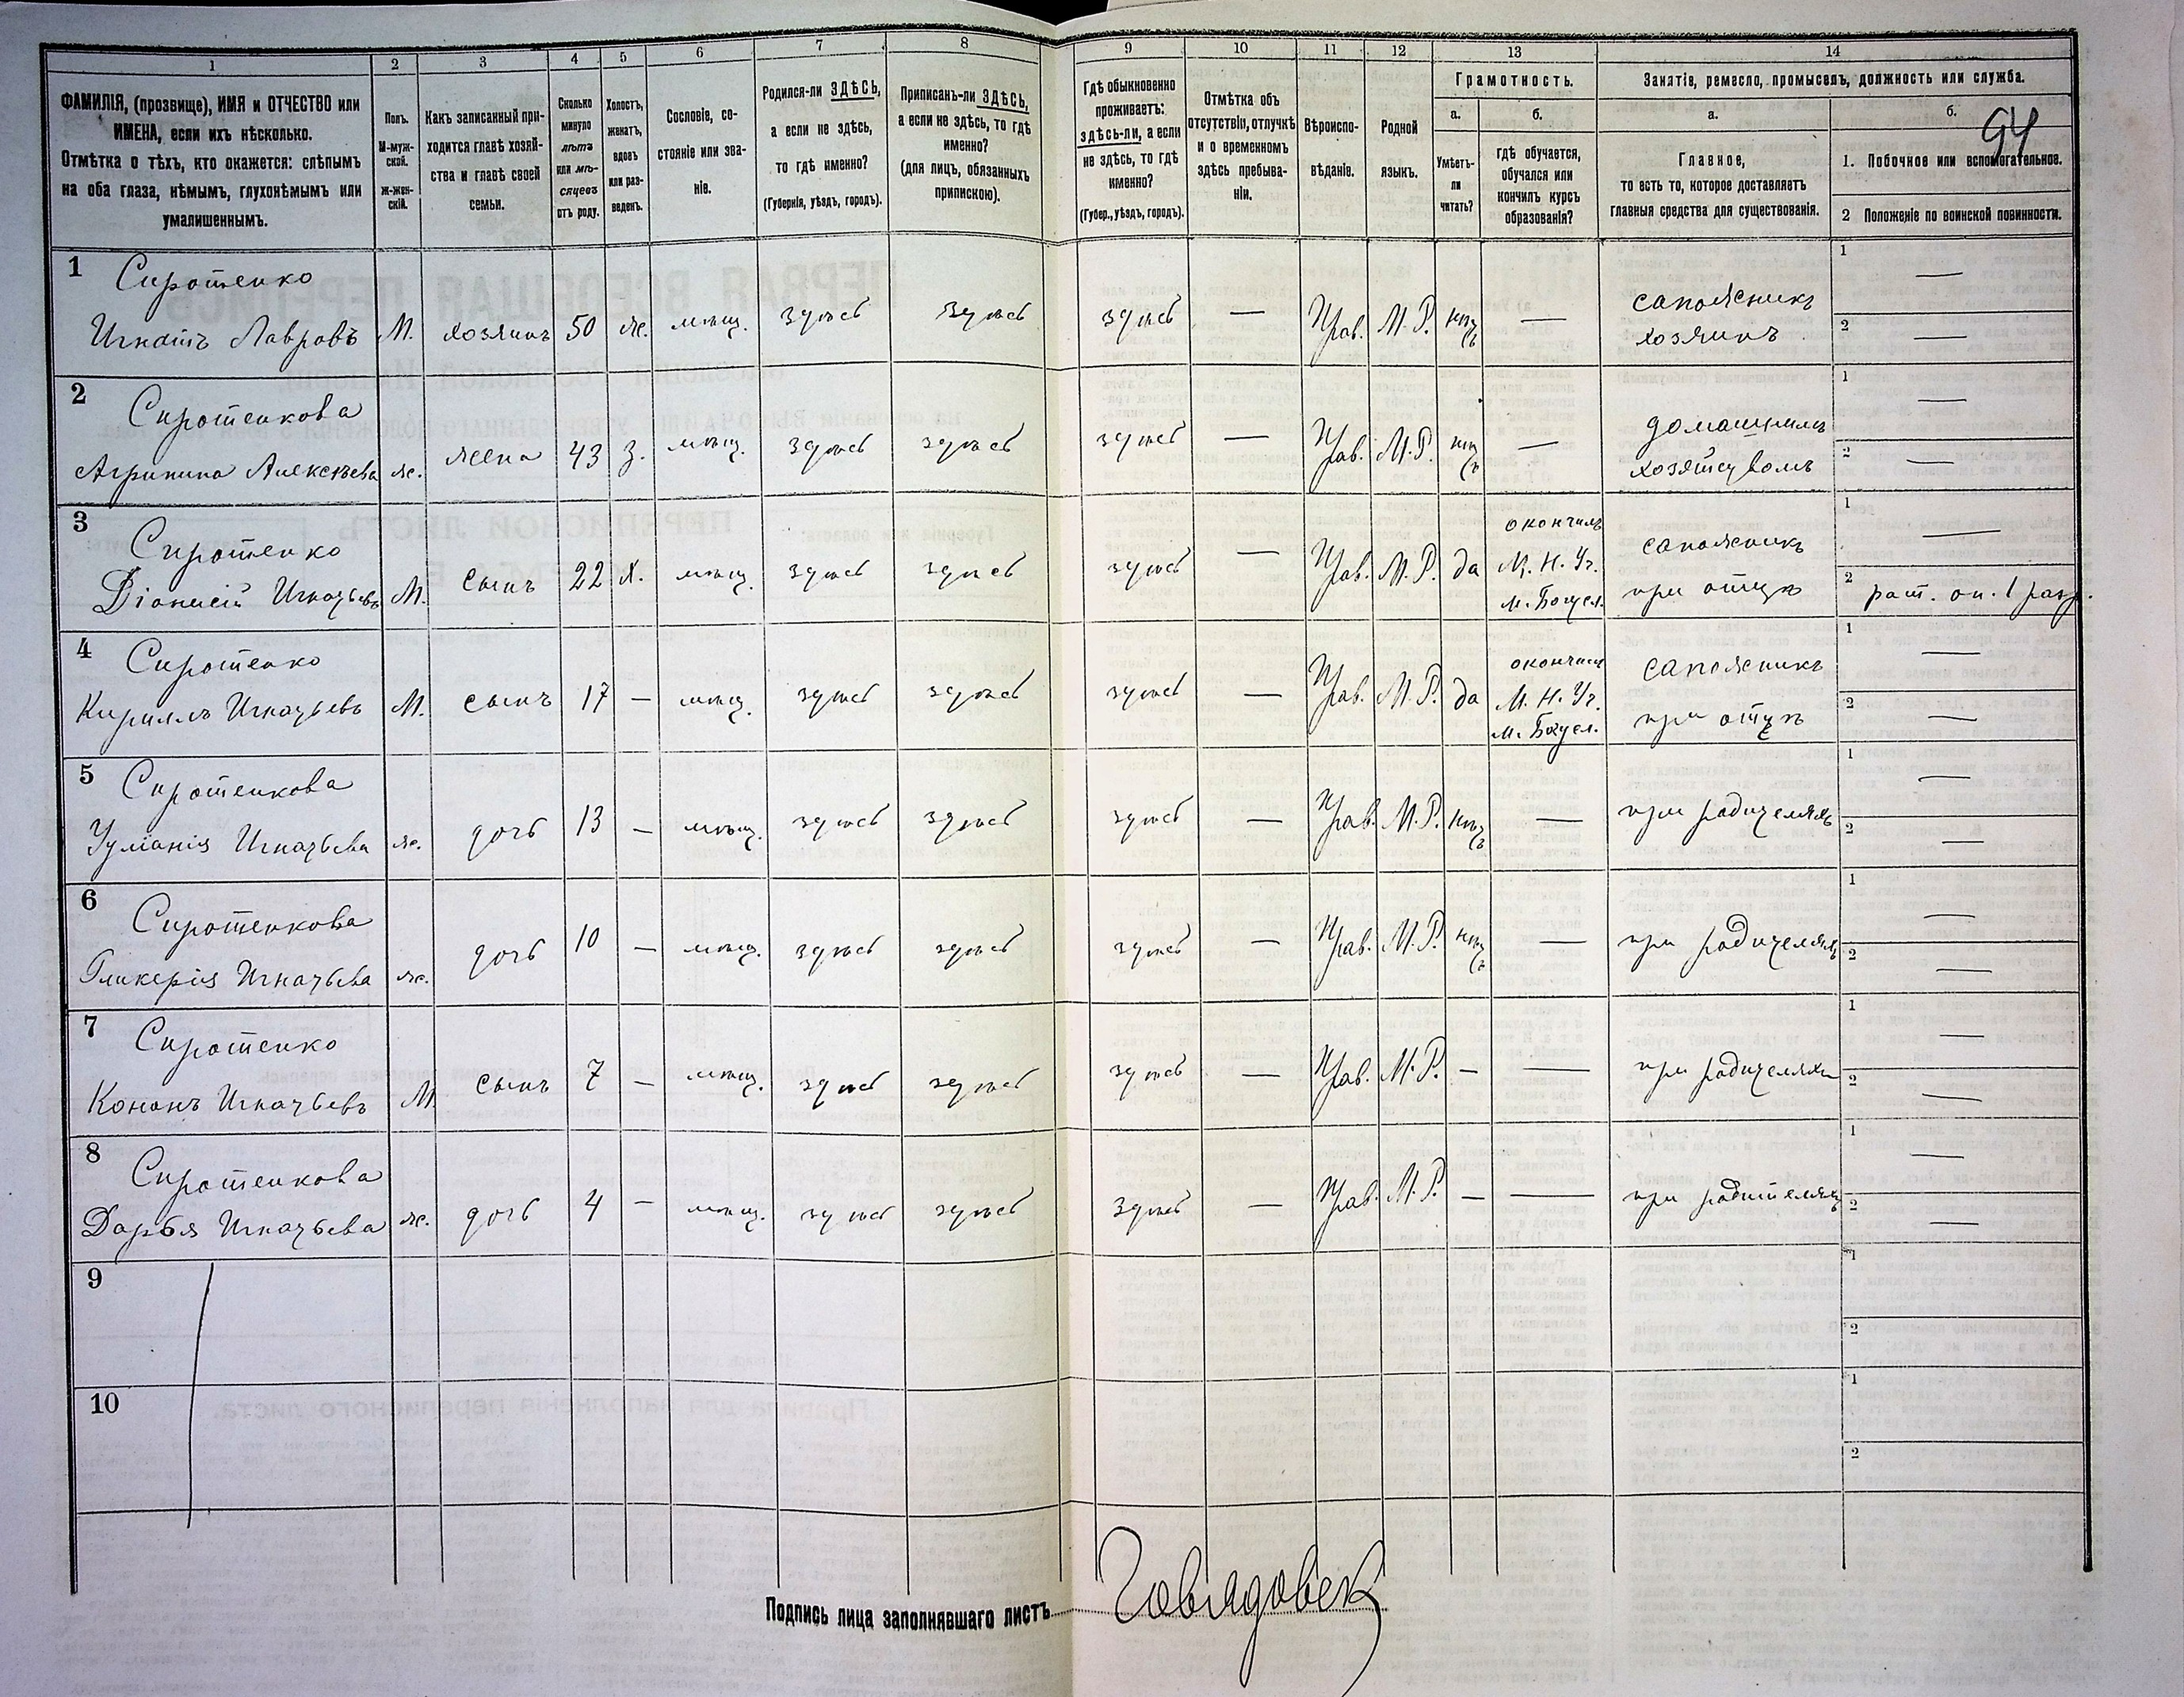 1 2 3 4 5 6 7 8 9 10 11 12 13 14
94
ФАМИЛІЯ, (прозвище), ИМЯ и ОТЧЕСТВО или
ИМЕНА, если ихъ нѣсколько.
Отмѣтка о тѣхъ, кто окажется: слѣпымъ
на оба глаза, нѣмымъ, глухонѣмымъ или
умалишеннымъ.
Полъ.
М-муж-
ской.
ж-жен-
скій.
Какъ записанный при-
ходится главѣ хозяй-
ства и главѣ своей
семьи.
Сколько
минуло
лѣтъ
или мѣ-
сяцевъ
отъ роду.
Холостъ,
женатъ,
вдовъ
или раз-
веденъ.
Сословіе, со-
стояніе или зва-
ніе.
Родился-ли ЗДѢСЬ,
а если не здѣсь,
то гдѣ именно?
(Губернія, уѣздъ, городъ).
Приписанъ-ли ЗДѢСЬ,
а если не здѣсь, то гдѣ
именно?
(для лицъ, обязанныхъ
припискою).
Гдѣ обыкновенно
проживаетъ:
здѣсь-ли, а если
не здѣсь, то гдѣ
именно?
(Губер., уѣздъ, городъ).
Отмѣтка объ
отсутствіи, отлучкѣ
и о временномъ
здѣсь пребыва-
ніи.
Вѣроиспо-
вѣданіе.
Родной
языкъ.
Грамотность.
а.
Умѣетъ-
ли
читать?
б.
гдѣ обучается,
обучался или
кончилъ курсъ
образованія?
Занятіе, ремесло, промыселъ, должность или служба.
а.
Главное,
то есть то, которое доставляетъ
главныя средства для существованія.
б.
1. Побочное или вспомогательное.
2 Положеніе по воинской повинности.
1 Сиротенко
Игнатъ Лавровъ М. хозяинъ 50 ж. мѣщ. здѣсь здѣсь здѣсь — Прав. М.Р. нѣтъ — сапожникъ 1 —
хозяинъ 2 —
2 Сиротенкова
Агрипина Алексѣева ж. жена 43 з. мѣщ. здѣсь здѣсь здѣсь — Прав. М.Р. нѣтъ — домашнимъ 1 —
хозяйствомъ 2 —
3 Сиротенко
Діонисій Игнатьевъ М. сынъ 22 х. мѣщ. здѣсь здѣсь здѣсь — Прав. М.Р. да окончилъ сапожникъ 1 —
М. Н. Уч.
при отцѣ 2 рат. оп. 1 разр.
4 Сиротенко
Кириллъ Игнатьевъ М. сынъ 17 — мѣщ. здѣсь здѣсь здѣсь — Прав. М.Р. да окончилъ сапожникъ 1 —
М. Н. Уч.
при отцѣ 2 —
5 Сиротенкова
Уліанія Игнатьева ж. дочь 13 — мѣщ. здѣсь здѣсь здѣсь — Прав. М.Р. нѣтъ — при родителяхъ 1 —
2 —
6 Сиротенкова
Гликерія Игнатьева ж. дочь 10 — мѣщ. здѣсь здѣсь здѣсь — Прав. М.Р. нѣтъ — при родителяхъ 1 —
2 —
7 Сиротенко
Кононъ Игнатьевъ М. сынъ 7 — мѣщ. здѣсь здѣсь здѣсь — Прав. М.Р. — — при родителяхъ 1 —
2 —
8 Сиротенкова
Дарья Игнатьева ж. дочь 4 — мѣщ. здѣсь здѣсь здѣсь — Прав. М.Р. — — при родителяхъ 1 —
2 —
9 1
2
10 1
2
Подпись лица заполнявшаго листъ